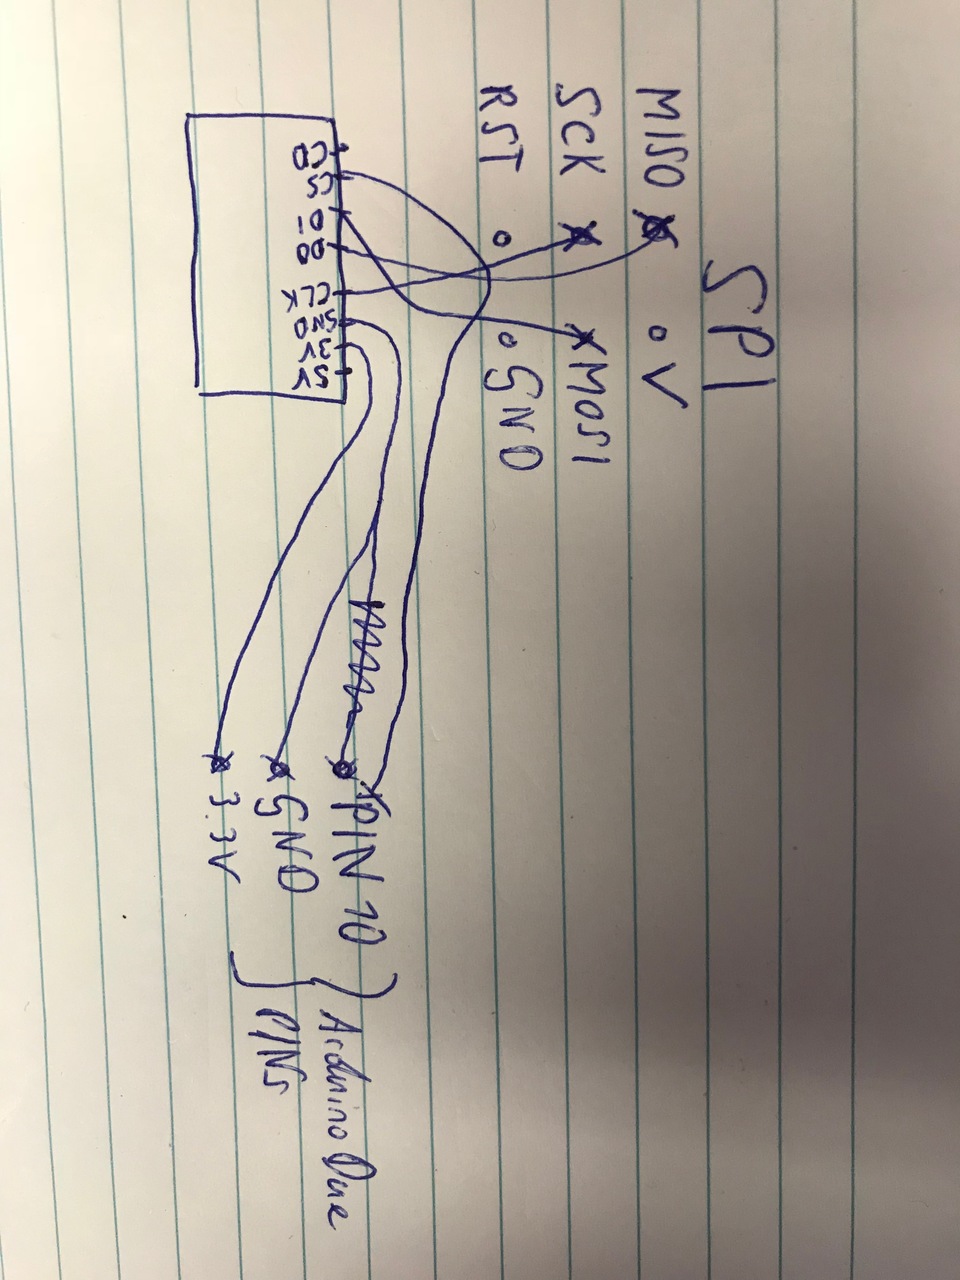 SPI
MISO
V
SCK
MOSI
RST
GND
CD
CS
DI
DO
CLK
GND
3V
5V
PIN 10
GND
3.3V
Arduino Due
PINs